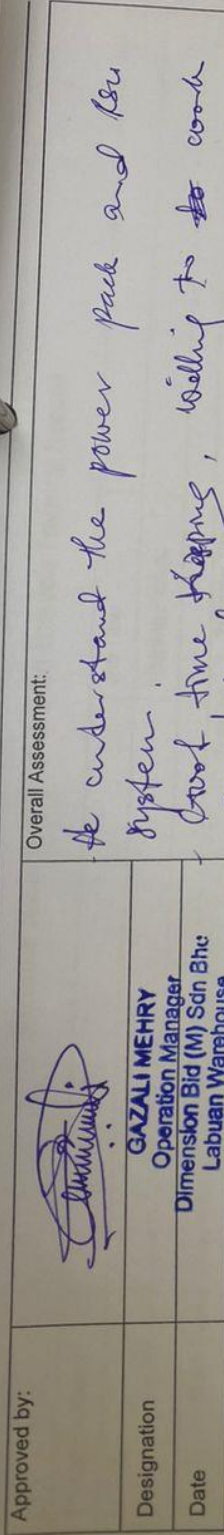 Approved by:
Designation
Date
GAZALI MEHRY
Operation Manager
Dimension Bid (M) Sdn Bhd
Labuan Warehouse
Overall Assessment:
- He understand the power pack and
system.
- Good time keeping, willing to work